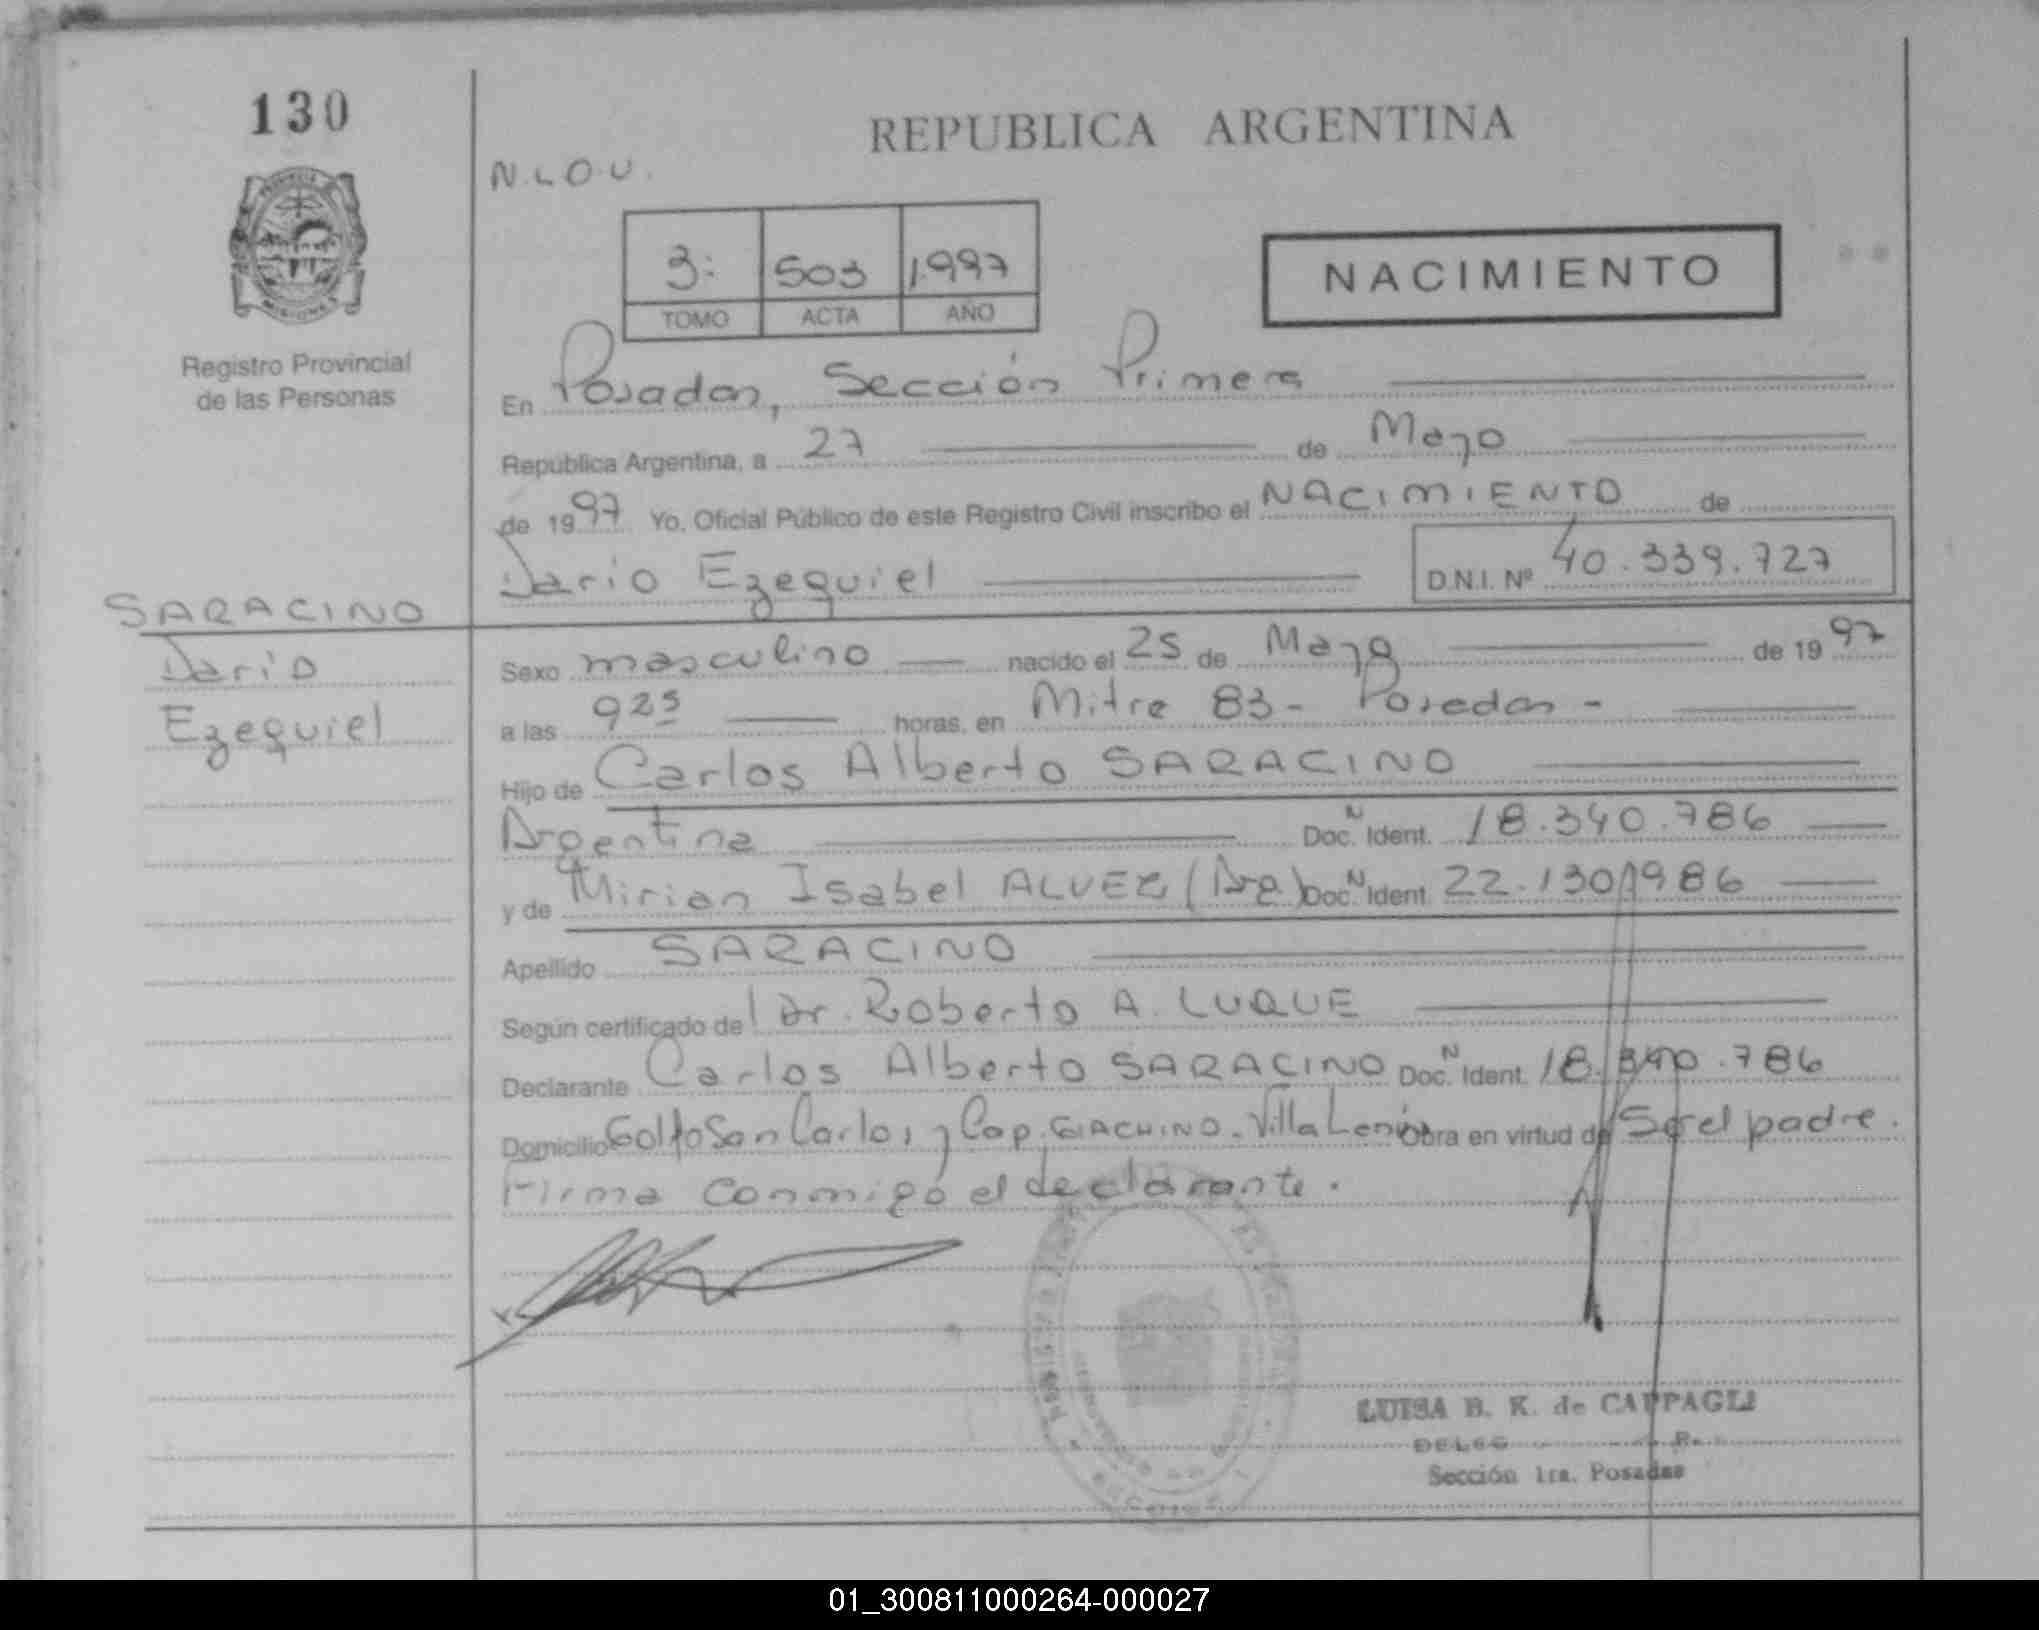 130
REPUBLICA ARGENTINA
N.L.O.U.
3: 503 1.997
TOMO ACTA AÑO
NACIMIENTO
PROVINCIA
MISIONES
Registro Provincial
de las Personas
En Posadas, Sección Primera
República Argentina, a 27 de Mayo
de 1997 Yo, Oficial Público de este Registro Civil inscribo el NACIMIENTO de
Dario Ezequiel D.N.I. Nº 40.339.727
SARACINO
Dario
Ezequiel
Sexo masculino nacido el 25 de Mayo de 1997
a las 925 horas, en Mitre 83 - Posadas -
Hijo de Carlos Alberto SARACINO
Argentina Doc. N Ident. 18.340.786
y de Mirian Isabel ALVEZ (Arg.) Doc. N Ident. 22.130.986
Apellido SARACINO
Según certificado del Dr. Roberto A. LUQUE
Declarante Carlos Alberto SARACINO Doc. N Ident. 18.340.786
Domicilio Golfo San Carlos y Cap. GIACHINO. Villa Obra en virtud de Ser el padre.
Firma conmigo el declarante.
LUISA B. K. de CAPPAGLI
Sección 1ra. Posadas
01_300811000264-000027